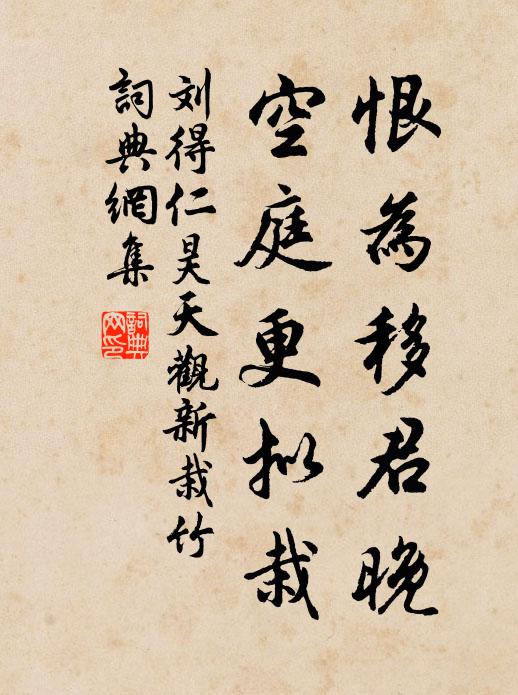 恨為移君晚
空庭更拟栽
刘得仁昊天觀新栽竹
詞典網集
詞典
网印